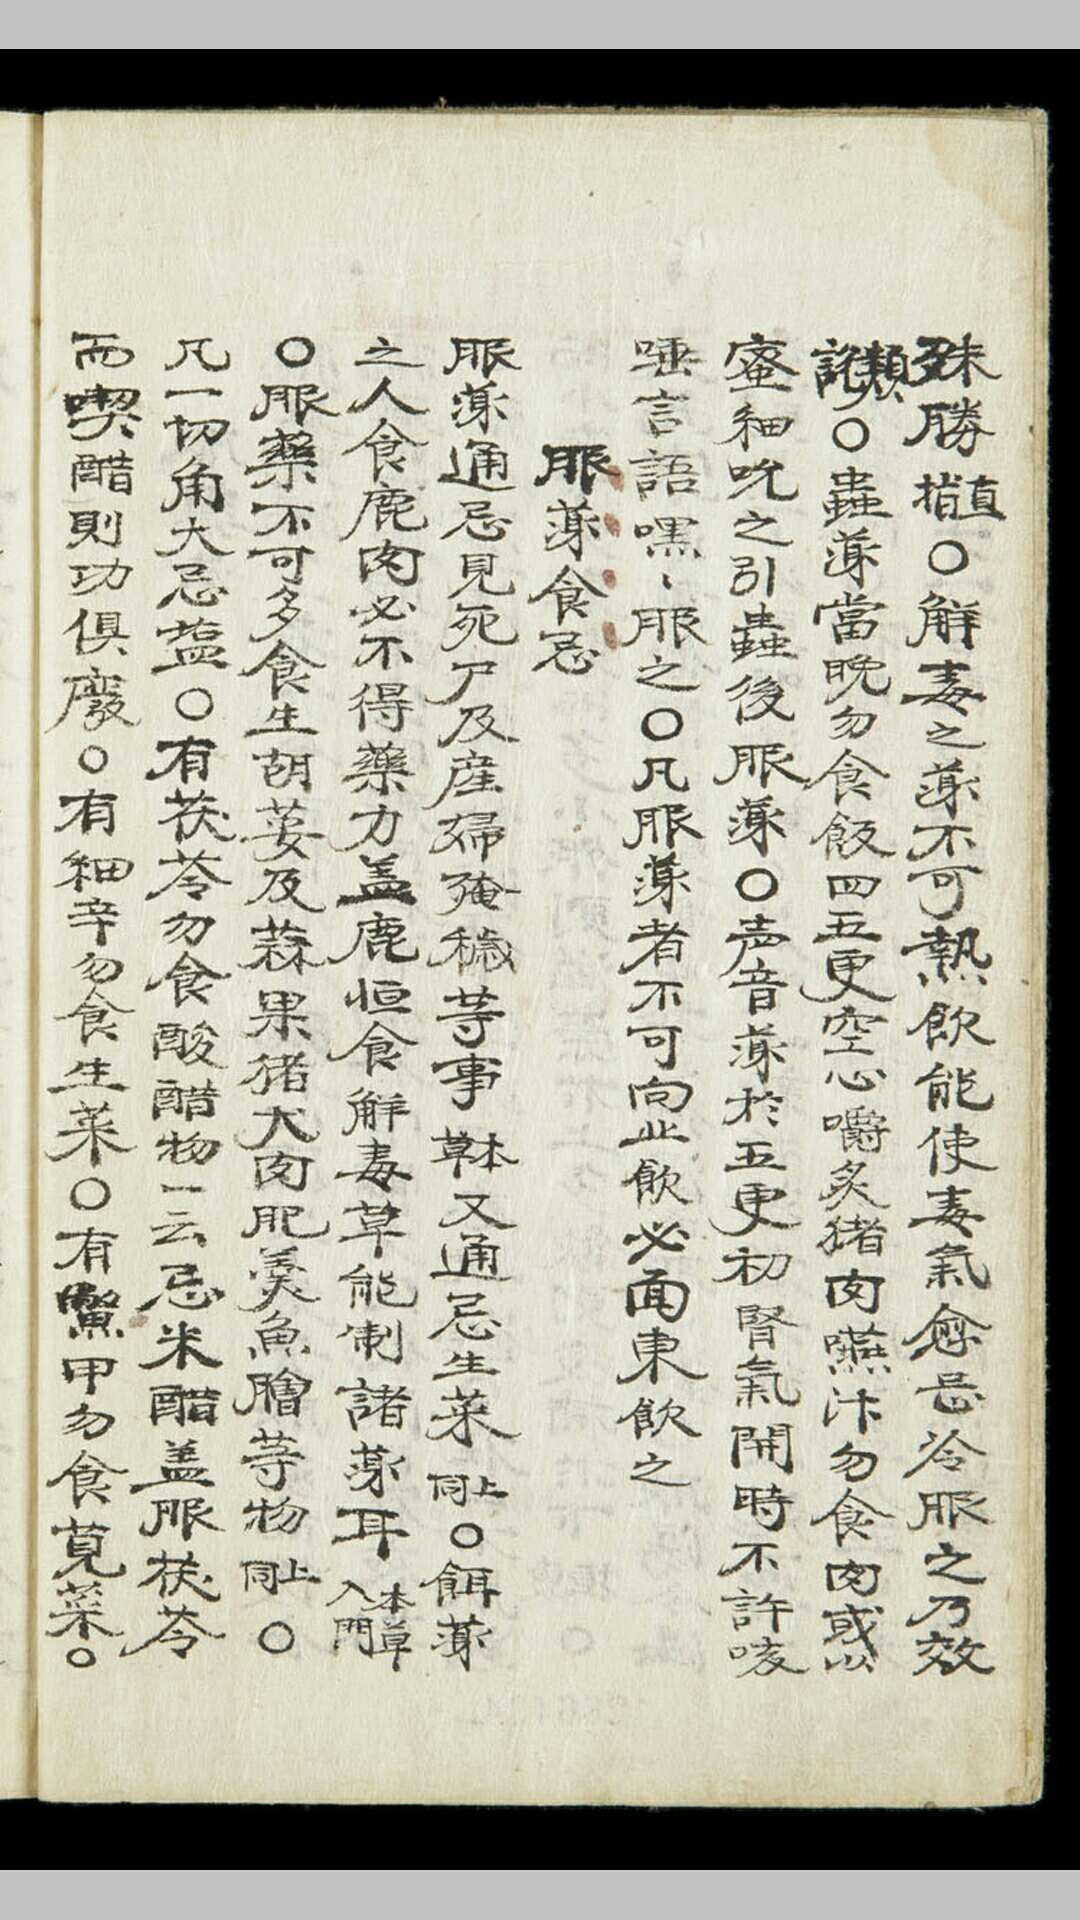 殊勝直指○解毒之薬不可熱飲能使毒氣愈甚冷服之乃效
類說○蟲薬當晩勿食飯四五更空心嚼炙猪肉嚥汁勿食肉或以
蜜細吮之引蟲後服薬○声音薬於五更初腎氣開時不許咳
唾言語嘿〻服之○凡服薬者不可向北飲必面東飲之
服薬食忌
服薬通忌見死尸及産婦殗穢等事本草又通忌生菜同上○餌薬
之人食鹿肉必不得藥力盖鹿恒食解毒草能制諸薬耳本草入門
○服藥不可多食生胡荽及蒜果猪犬肉肥羹魚膾等物同上○
凡一切角大忌塩○有茯苓勿食酸醋物一云忌米醋盖服茯苓
而喫醋則功俱廢○有細辛勿食生菜○有鱉甲勿食莧菜○